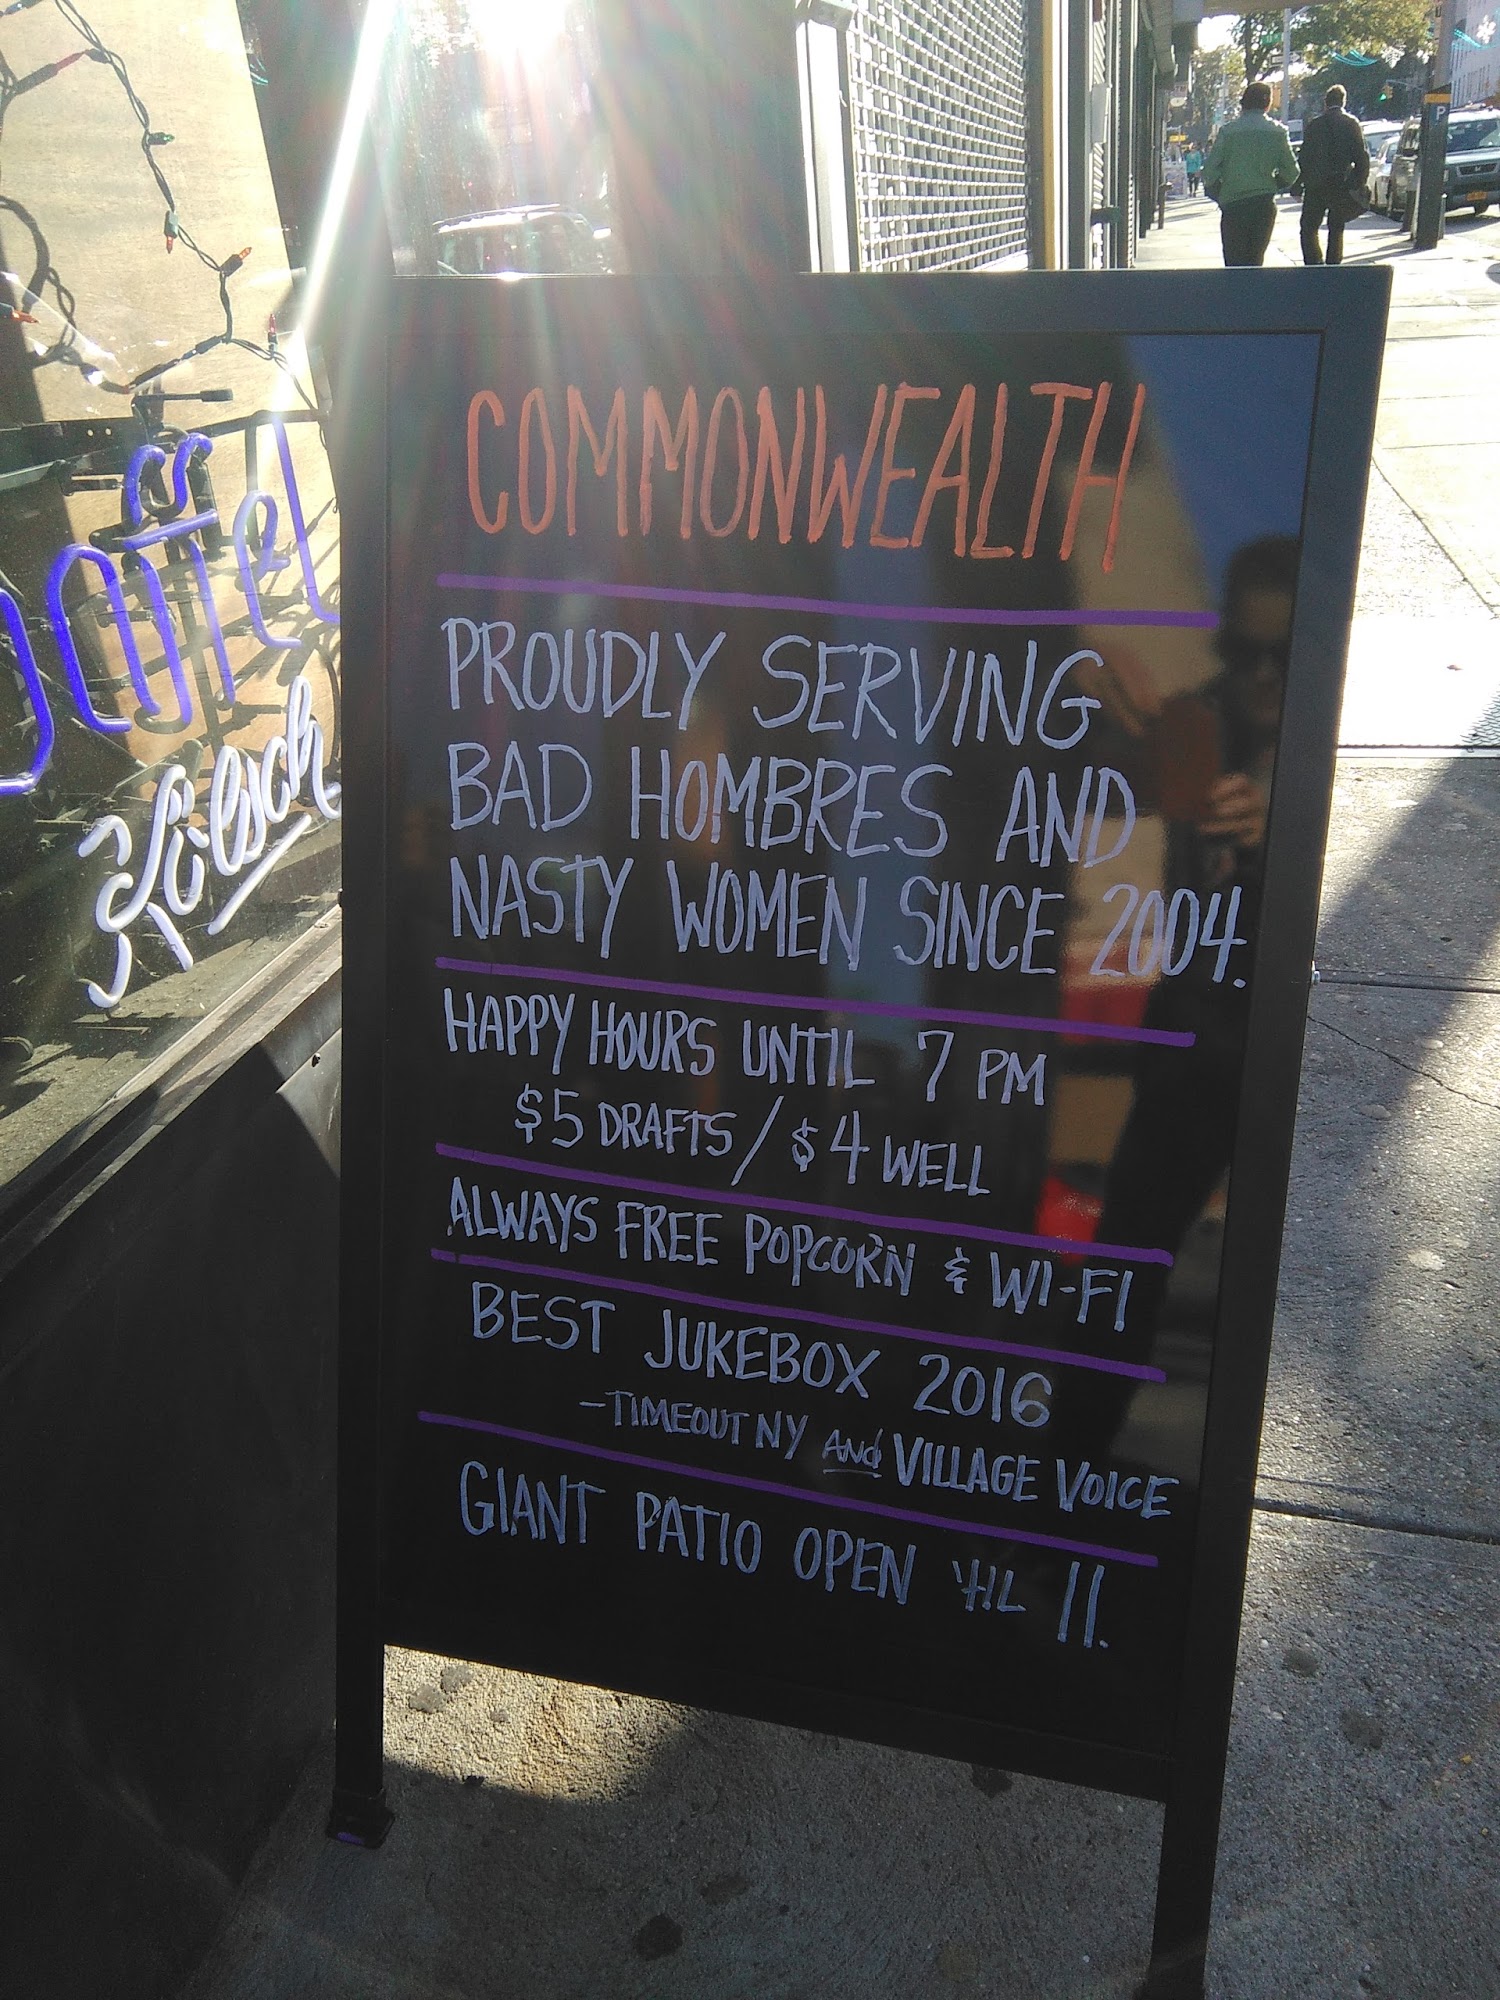 COMMONWEALTH
PROUDLY SERVING
BAD HOMBRES AND
NASTY WOMEN SINCE 2004.
HAPPY HOURS UNTIL 7 PM
$5 DRAFTS / $4 WELL
ALWAYS FREE POPCORN & WI-FI
BEST JUKEBOX 2016
-TIMEOUT NY AND VILLAGE VOICE
GIANT PATIO OPEN 'TIL 11.
Kölsch
P